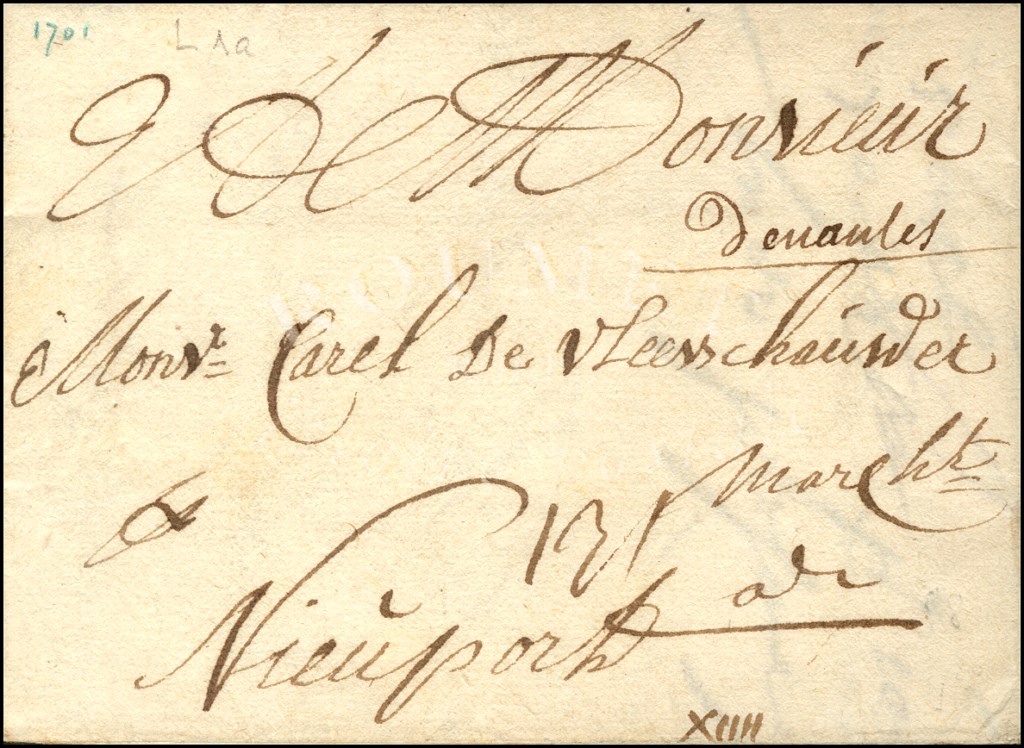 1701 L1a
A Monsieur
Denantes
Monsr Carel De Vleeschauwder
marcht
a
Nieuport
XIIII